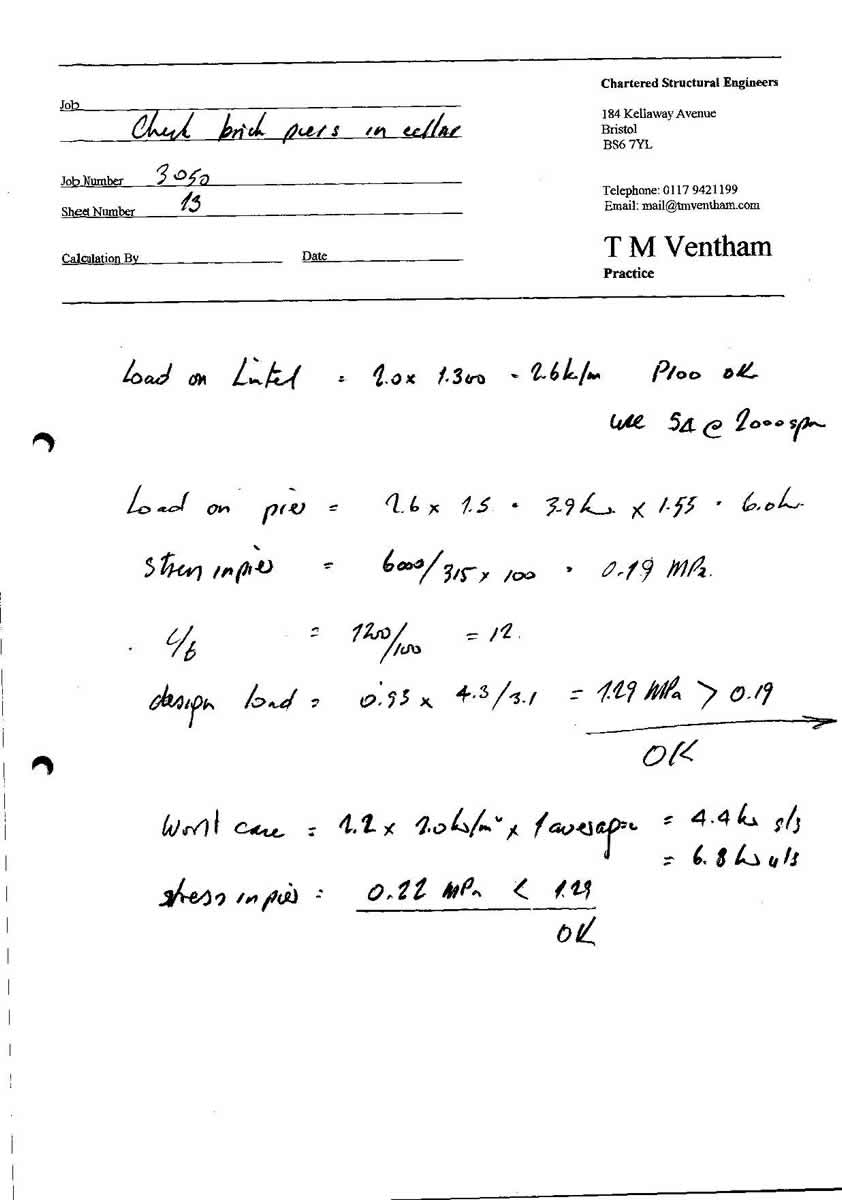 Chartered Structural Engineers
Job
Check brick piers in cellar
184 Kellaway Avenue
Bristol
BS6 7YL
Job Number 3050
Sheet Number 13
Telephone: 0117 9421199
Email: mail@tmventham.com
Calculation By Date
T M Ventham
Practice
Load on Lintel = 2.0 x 1.300 = 2.6 k/m P100 OK
use SA @ 2000 span
Load on pier = 2.6 x 1.5 = 3.9 kn x 1.55 = 6.0 kn
stress in pier = 6000/315 x 100 = 0.19 MPa.
L/b = 1200/100 = 12.
design load = 0.93 x 4.3/3.1 = 1.29 MPa > 0.19
OK
Worst case = 2.2 x 2.0 kn/m² x 1 average = 4.4 kn s/s
= 6.8 kn u/s
stress in pier = 0.22 MPa < 1.29
OK